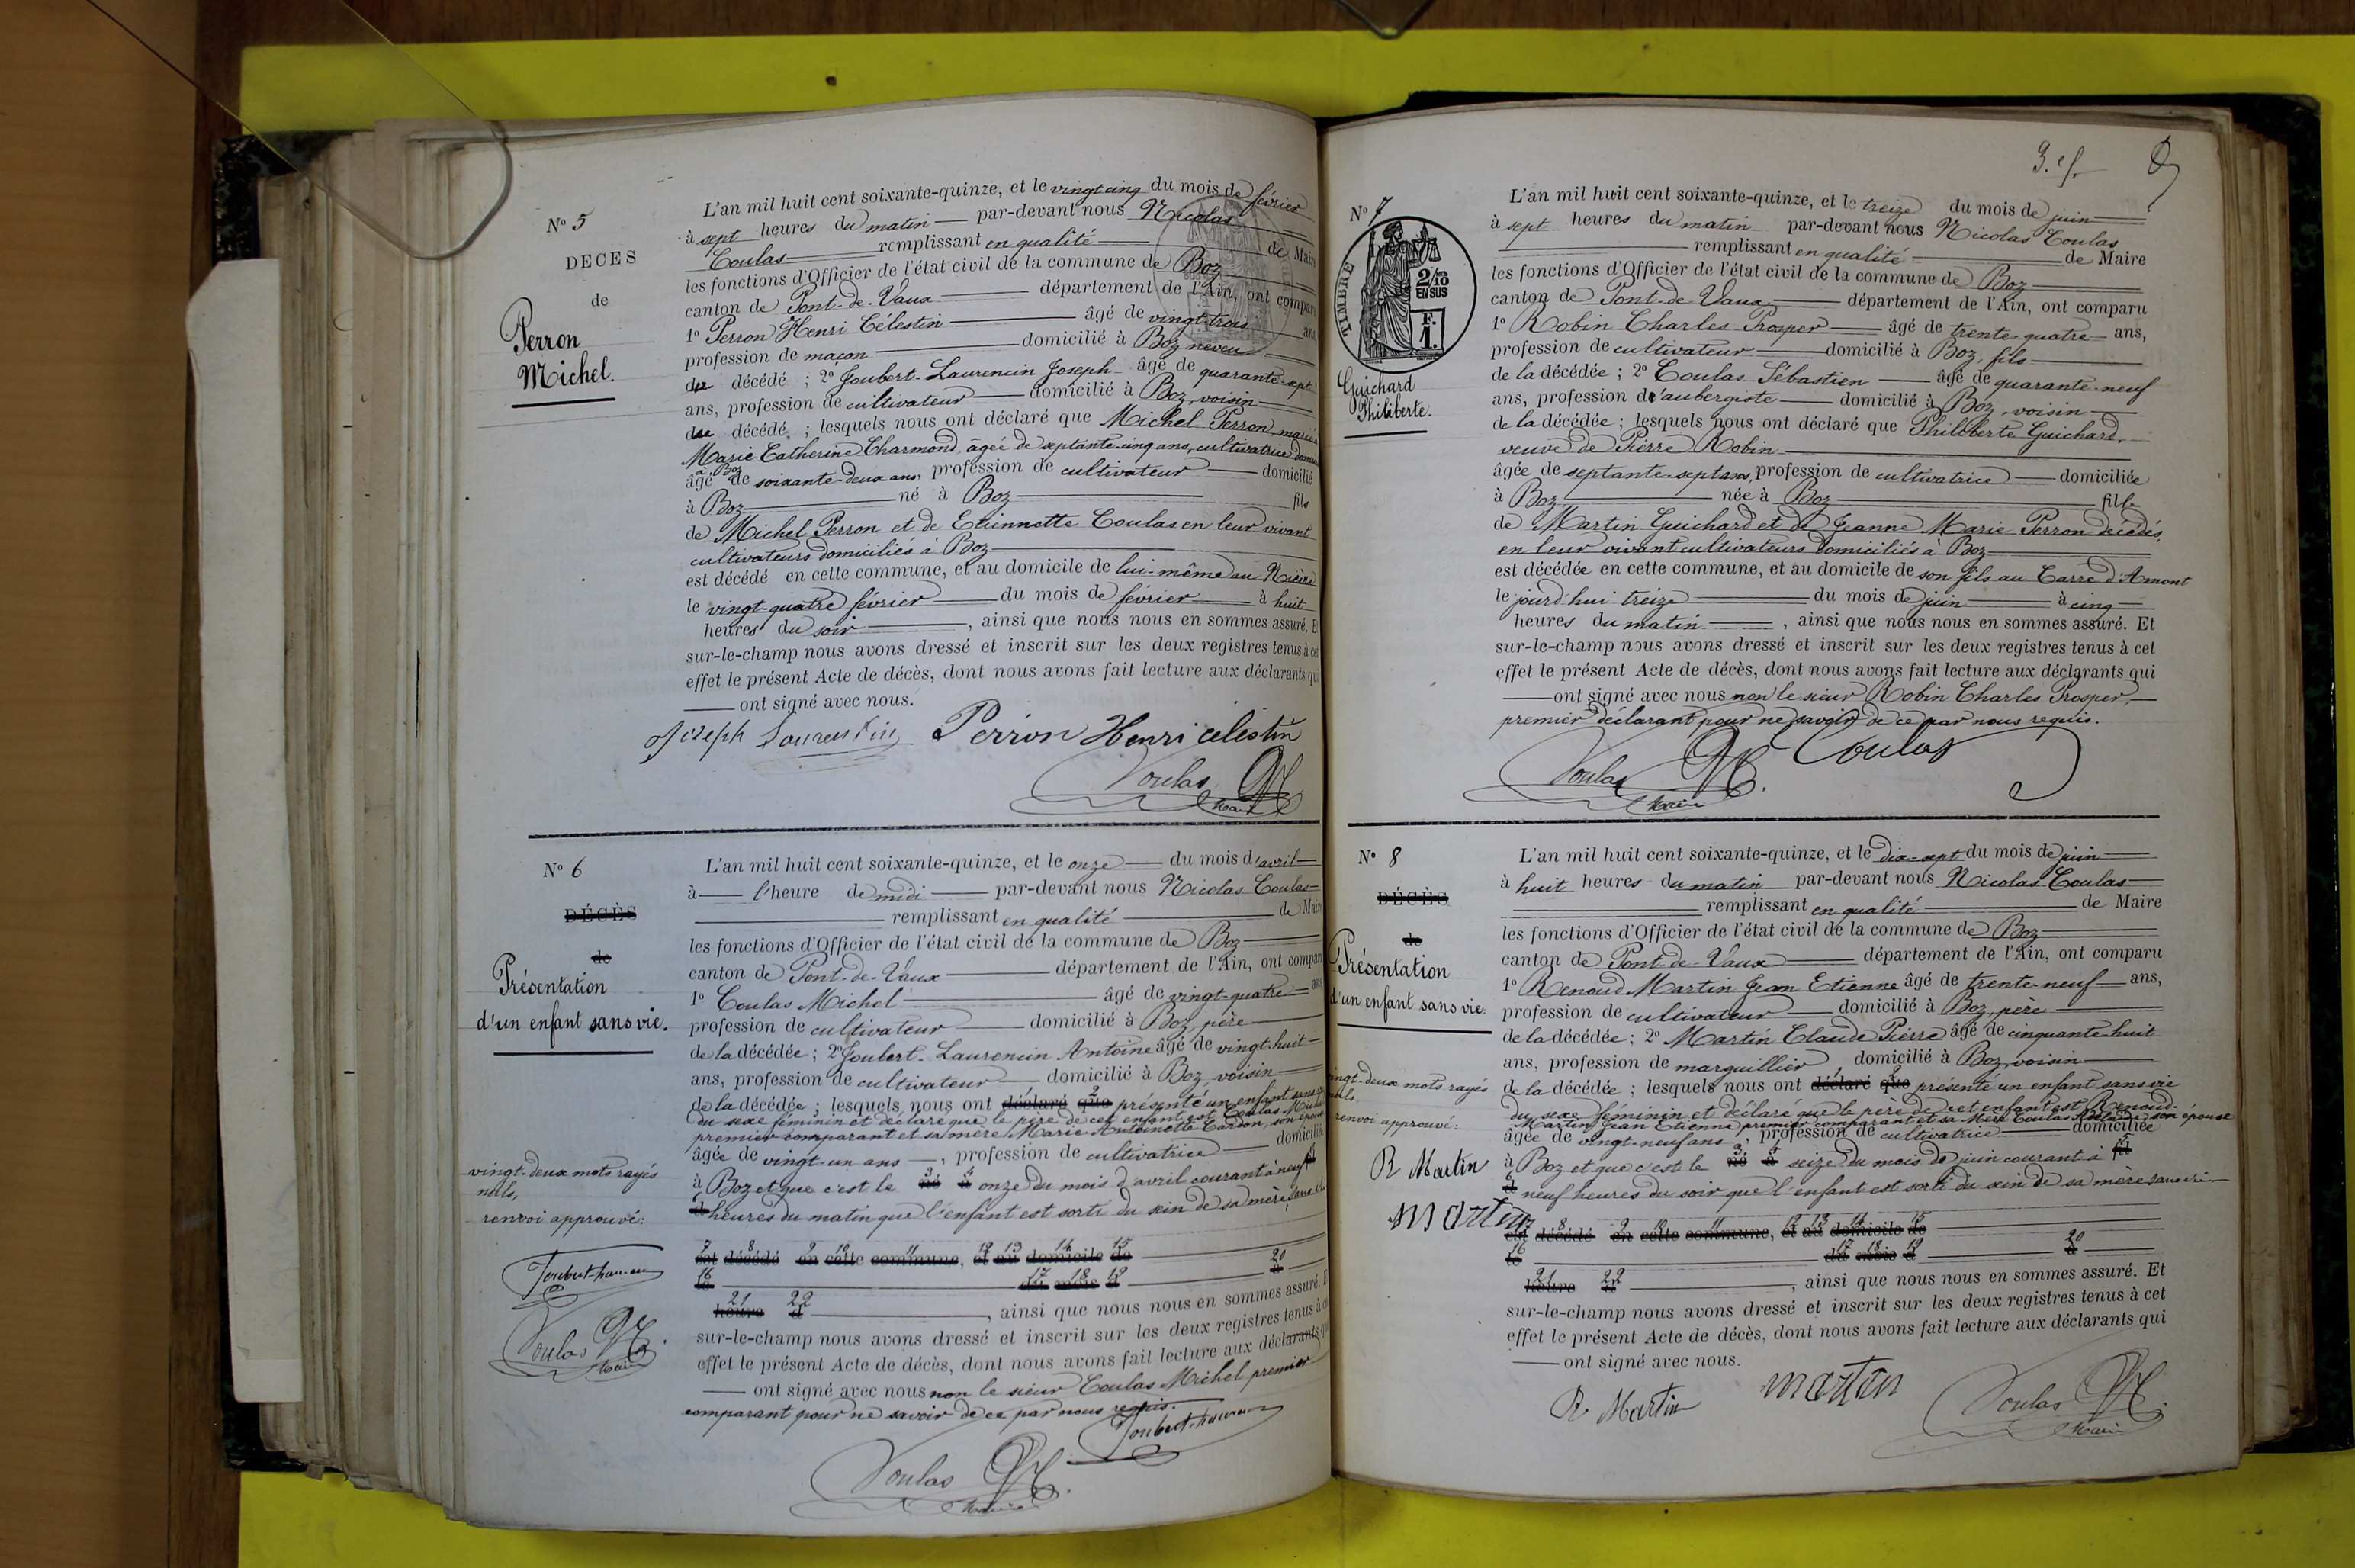 N° 5
DECES
de
Perron
Michel.
L'an mil huit cent soixante-quinze, et le vingt cinq du mois de février
à sept heures du matin par-devant nous Nicolas
Coulas remplissant en qualité de Maire
les fonctions d'Officier de l'état civil de la commune de Boz
canton de Pont-de-Vaux département de l'Ain, ont comparu
1° Perron Henri Célestin âgé de vingt-trois ans
profession de maçon domicilié à Boz neveu
du décédé ; 2° Joubert-Laurencin Joseph âgé de quarante-sept
ans, profession de cultivateur domicilié à Boz, voisin
du décédé ; lesquels nous ont déclaré que Michel Perron, marié
Marie Catherine Charmond, âgée de septante-cinq ans, cultivatrice
à Boz
âgé de soixante-deux ans, profession de cultivateur domicilié
à Boz né à Boz fils
de Michel Perron et de Etiennette Coulas en leur vivant
cultivateurs domiciliés à Boz
est décédé en cette commune, et au domicile de lui-même au
le vingt-quatre février du mois de fevrier à huit
heures du soir, ainsi que nous nous en sommes assuré. E
sur-le-champ nous avons dressé et inscrit sur les deux registres tenus à cet
effet le présent Acte de décès, dont nous avons fait lecture aux déclarants qui
ont signé avec nous.
Joseph Laurencin Perron Henri célestin
Coulas Maire
N° 6
DÉCÈS
de
Présentation
d'un enfant sans vie.
L'an mil huit cent soixante-quinze, et le onze du mois d'avril
à l'heure de midi par-devant nous Nicolas Coulas
remplissant en qualité de Maire
les fonctions d'Officier de l'état civil de la commune de Boz
canton de Pont-de-Vaux département de l'Ain, ont comparu
1° Coulas Michel âgé de vingt-quatre ans
profession de cultivateur domicilié à Boz, père
de la décédée ; 2° Joubert-Laurencin Antoine âgé de vingt-huit
ans, profession de cultivateur domicilié à Boz, voisin
de la décédée ; lesquels nous ont déclaré que présenté un enfant sans
du sexe féminin et déclaré que le père de cet enfant est Coulas Michel
premier comparant et sa mère Marie Antoinette Cardon, son épouse
âgée de vingt-un ans, profession de cultivatrice domiciliée
à Boz et que c'est le né à onze du mois d'avril courant à neuf
heures du matin que l'enfant est sorti du sein de sa mère, sans
7 8 9 10 11 12 13 14 15
est décédé en cette commune, et au domicile de
16 17 18 19 20
le du mois d à
21 22
heure d, ainsi que nous nous en sommes assuré. E
sur-le-champ nous avons dressé et inscrit sur les deux registres tenus à cet
effet le présent Acte de décès, dont nous avons fait lecture aux déclarants qui
ont signé avec nous non le sieur Coulas Michel premier
comparant pour ne savoir de ce par nous requis.
Coulas Maire
vingt-deux mots rayés
nuls,
renvoi approuvé:
Coulas Maire
3. ef.
N° 7
TIMBRE
2/10
EN SUS
F.
1.
Guichard
Philiberte.
L'an mil huit cent soixante-quinze, et le treize du mois de juin
à sept heures du matin par-devant nous Nicolas Coulas
remplissant en qualité de Maire
les fonctions d'Officier de l'état civil de la commune de Boz
canton de Pont-de-Vaux département de l'Ain, ont comparu
1° Robin Charles Prosper âgé de trente-quatre ans,
profession de cultivateur domicilié à Boz, fils
de la décédée ; 2° Coulas Sébastien âgé de quarante-neuf
ans, profession d'aubergiste domicilié à Boz, voisin
de la décédée ; lesquels nous ont déclaré que Philiberte Guichard,
veuve de Pierre Robin
âgée de septante-sept ans, profession de cultivatrice domiciliée
à Boz née à Boz fille
de Martin Guichard et de Jeanne Marie Perron décédés,
en leur vivant cultivateurs domiciliés à Boz
est décédée en cette commune, et au domicile de son fils au Carre d'Amont
le jourd'hui treize du mois de juin à cinq
heures du matin, ainsi que nous nous en sommes assuré. Et
sur-le-champ nous avons dressé et inscrit sur les deux registres tenus à cet
effet le présent Acte de décès, dont nous avons fait lecture aux déclarants qui
ont signé avec nous non le sieur Robin Charles Prosper,
premier déclarant pour ne savoir de ce par nous requis.
Coulas Maire Coulas
N° 8
DÉCÈS
de
Présentation
d'un enfant sans vie.
L'an mil huit cent soixante-quinze, et le dix-sept du mois de juin
à huit heures du matin par-devant nous Nicolas Coulas
remplissant en qualité de Maire
les fonctions d'Officier de l'état civil de la commune de Boz
canton de Pont-de-Vaux département de l'Ain, ont comparu
1° Renoud Martin Jean Etienne âgé de trente-neuf ans,
profession de cultivateur domicilié à Boz, père
de la décédée ; 2° Martin Claude Pierre âgé de cinquante-huit
ans, profession de marguillier, domicilié à Boz, voisin
de la décédée ; lesquels nous ont déclaré que présenté un enfant sans vie
du sexe féminin et déclaré que le père de cet enfant est Renoud-
Martin Jean Etienne premier comparant et sa mère Coulas Adélaïde son épouse
âgée de vingt-neuf ans, profession de cultivatrice domiciliée
à Boz et que c'est le né à seize du mois de juin courant à
neuf heures du soir que l'enfant est sorti du sein de sa mère sans vie
7 8 9 10 11 12 13 14 15
est décédé en cette commune, et au domicile de
16 17 18 19 20
le du mois d à
21 22
heure d, ainsi que nous nous en sommes assuré. Et
sur-le-champ nous avons dressé et inscrit sur les deux registres tenus à cet
effet le présent Acte de décès, dont nous avons fait lecture aux déclarants qui
ont signé avec nous.
R Martin martin Coulas Maire
vingt-deux mots rayés
nuls,
renvoi approuvé:
R Martin
martin